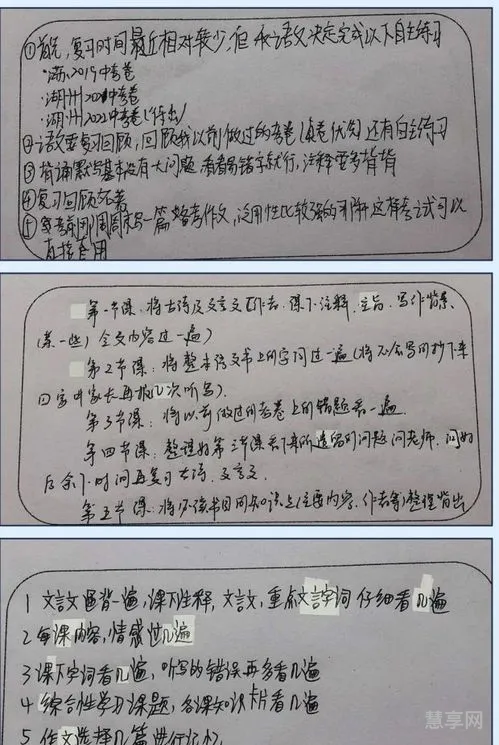 ①首先,复习时间最近相对较少,但 语文决定完成以下自主练习
·2019中考卷
·湖州2021中考卷
·湖州2022中考卷(待出)
②语文重复习回顾,回顾我以前做过的考卷(真卷优先)还有自主练习
③背诵默写基本没有大问题,看看易错字就行,注释要多背背
④复习回顾
⑤每考前那周周末写一篇备考作文,泛用性比较强的 ,这样考试可以
直接套用
第一节课:将古诗及文言文(作者、课下注释、主旨、写作背景、
(某一些)全文内容过一遍)
第2节课:将整本语文书上的字词过一遍(将不会写的抄下来
回家叫家长再报几次听写).
第3节课:将以前做过的考卷上的错题看一遍.
第四节课:整理好第三节课看下来所遗留的问题问老师.问好
后余下时间再复习古诗、文言文.
第五节课:将必读书目的知识点(主要内容、作者等)整理背出
1 文言文通背一遍,课下注释,文言文,重点文言字词 仔细看几遍
2 每课内容,情感过几遍
3 课下字词看几遍,听写的错误再多看几遍
4 综合性学习课题,各课知识卡片看几遍
5 作文选择几篇进行记忆.
慧享网